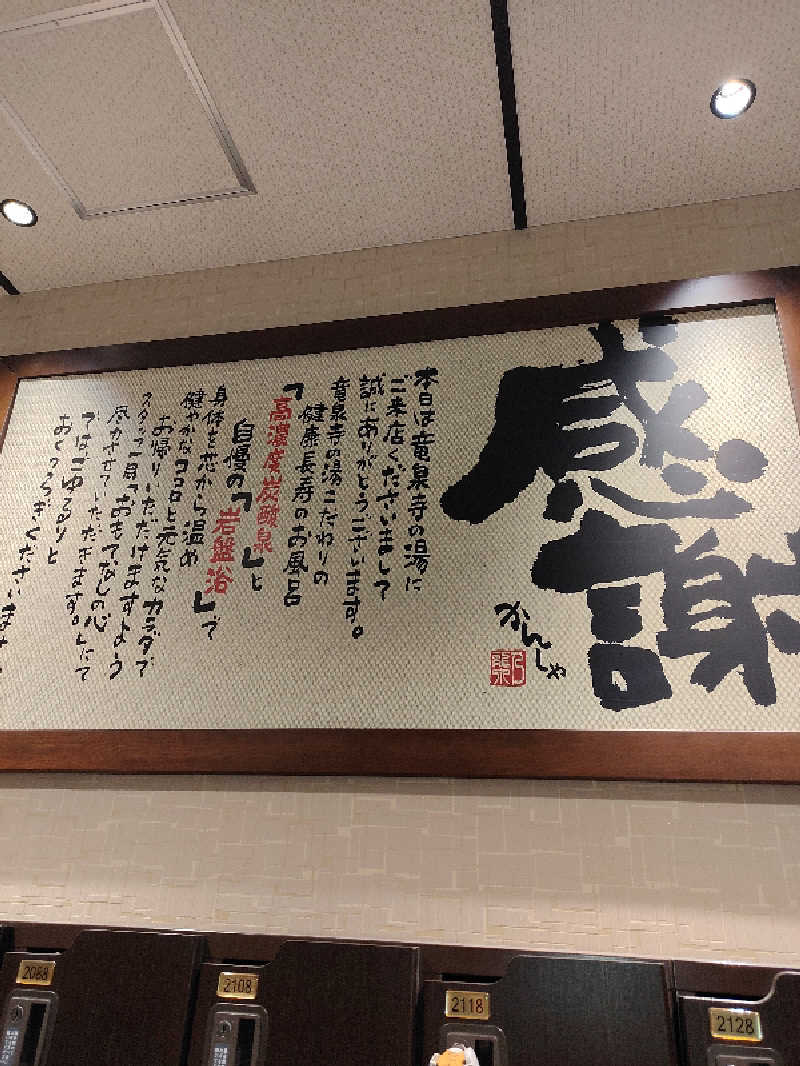 感謝
かんしゃ
本日は竜泉寺の湯に
ご来店くださいまして
誠にありがとうございます。
竜泉寺の湯こだわりの
健康長寿のお風呂
「高濃度炭酸泉」と
自慢の「岩盤浴」で
身体を芯から温め
健やかなココロと元気なカラダで
お帰りいただけますよう
スタッフ一同「おもてなしの心」にて
尽力させていただきます。
ではごゆるりと
おくつろぎくださいませ
2088
2108
2118
2128